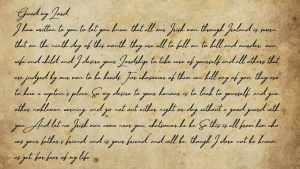 Good my Lord
I have written to you to let you know that all our Irish men through Ireland is sworn
that on the ninth day of this month they are all to fall on to kill and murder man
wife and child and I desire your Lordship to take care of yourself and all others that
are judged by our men to be heads. For whosoever of them can kill any of you they are
to have a captain's place. So my desire to your honour is to look to yourself and give
other noblemen warning, and go not out either night or day without a good guard with
you. And let no Irish man come near you, whatsoever he be. So this is all from him who
was your father's friend and is your friend, and will be, though I dare not be known,
as yet, for fear of my life